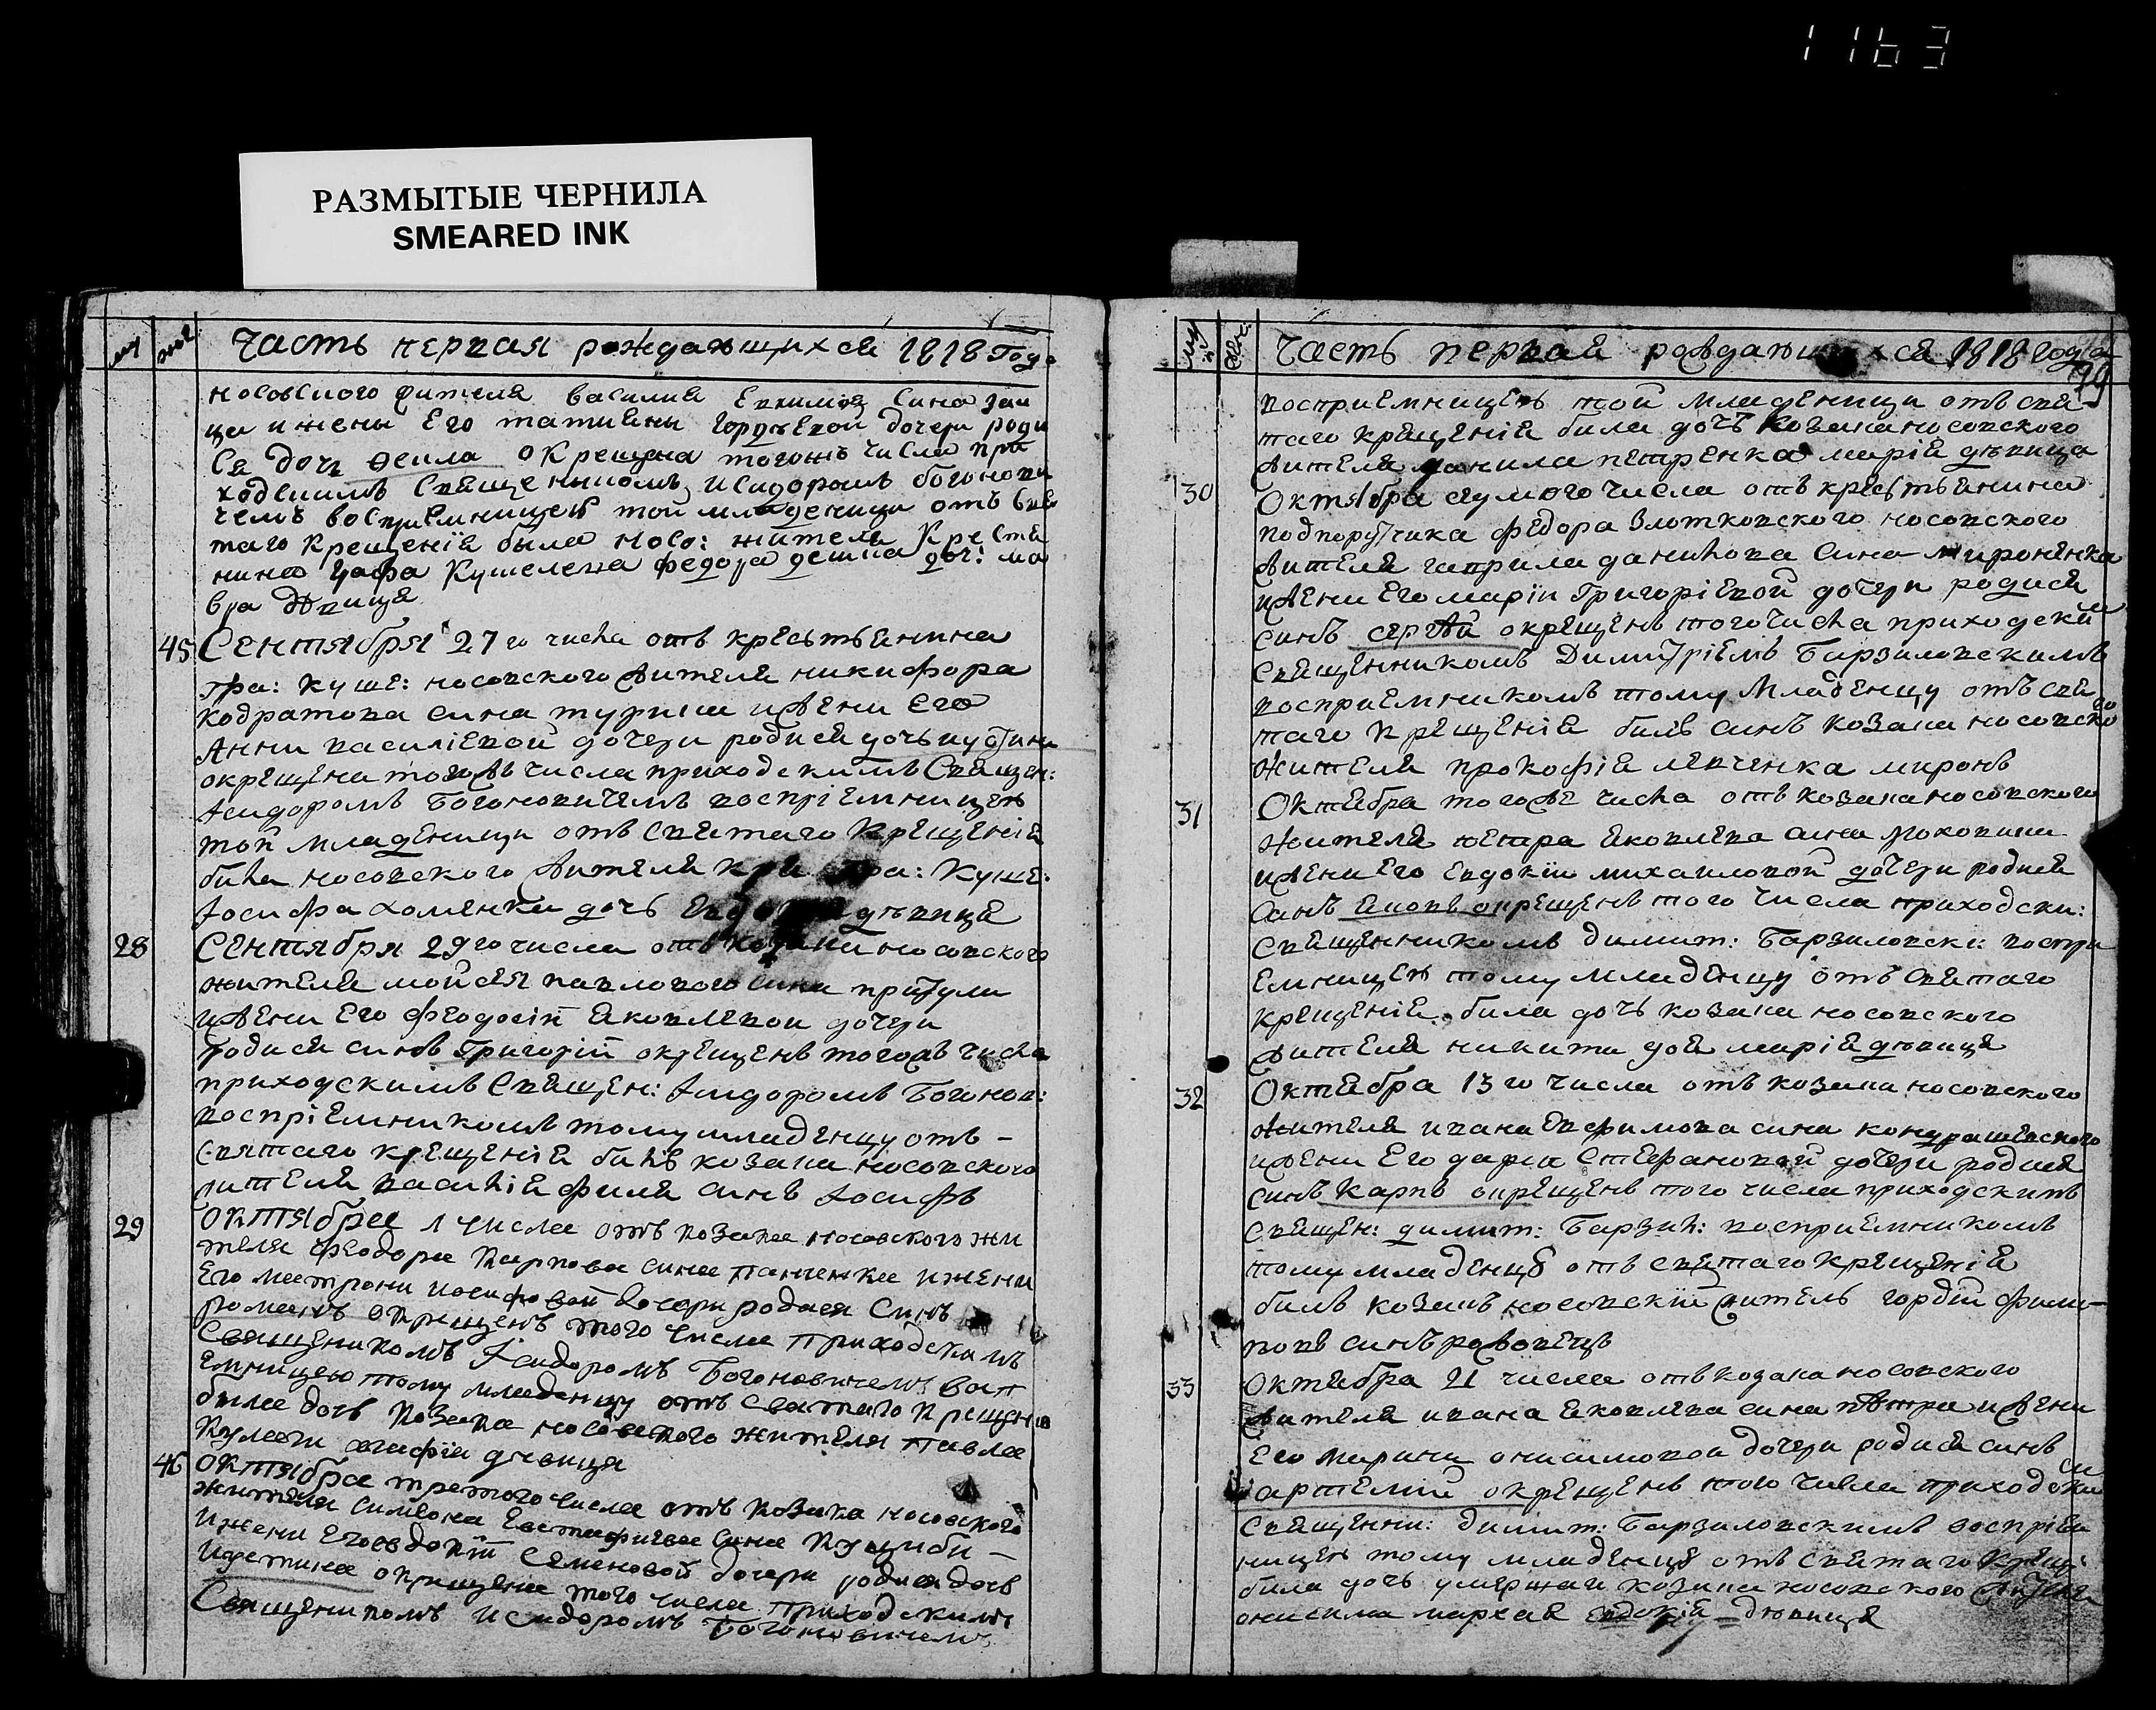 1163
РАЗМЫТЫЕ ЧЕРНИЛА
SMEARED INK
му
Часть первая рождающихся 1818 Года
носовского жителя василия сина
жены Его татияны дочери роди
ся дочь окрещена тогожъ числа при
ходскимъ Священникомъ Исидоромъ богонови
чемъ восприемницей той младеници отъ свя
таго Крещенїя была носо: жителя Крестя
нина Графа Кушелева федора доч: ма
вра дѣвица
45 Сентября 27го числа отъ кресьтьянина
гра: куше: носовского жителя никифора
кодратова сина и жени Его
Анни василіевой дочери родися дочь
окрещена тогожъ числа приходскимъ Священ:
Исидоромъ Богоновичемъ воспріемницею
той младеници отъ Святаго Крещеніа
била носовского жителя кре гра: Куше:
Іосифа хоменка дочь дѣвица
28 Сентября 29го числа отъ козака носовского
жителя мойсея павлового сина притули
и жени Его феодосіи яковлевои дочери
родися синъ Григорій окрещенъ тогожъ числа
приходскимъ Священ: Исидоромъ Богонов:
воспріемникомъ тому младенцу отъ -
Святаго крещеніа билъ козака носовского
жителя василіа филя синъ Іосифъ
29 октября 1 числа отъ козака носовского жи
теля феодора карпова сина панченка и жени
Его матрони иосифовой дочери родися Синъ
романъ окрещенъ того числа приходскимъ
Священикомъ Исидоромъ Богоновичемъ восп
емницею тому младенцу отъ Святаго крещенія
била дочь козака носовского жителя павла
агафія дѣвица
46 октября третого числа отъ козака носовского
жителя Симеона Евстафиева сина
и жени Его евдокіи Семеновой дочери родися дочь
иустина окрещена того числа приходскимъ
Священикомъ Исидоромъ Богоновичемъ
Часть первая рождающихся 1818 года
99
восприемницею той младеници отъ свя
таго крещеніа била дочъ козака носовского
жителя данила петренка маріа дѣвица
30 Октября седмого числа отъ кресьтьянина
подпоручика федора Злотковского носовского
жителя гаврила данилова сина мироненка
и жени Его маріи Григоріевой дочери родися
синъ сергѣй окрещенъ того числа приходски
Священникомъ Димитріемъ Барзиловскимъ
восприемникомъ тому младенцу отъ свя
таго крещеніа билъ синъ козака носовского
жителя прокофіа левченка миронъ
31 Октября того же числа отъ козака носовского
жителя петра яковлева сина
и жени Его евдокіи михаиловой дочери родися
синъ яковъ окрещенъ того числа приходски:
Священникомъ димит: Барзиловски: воспри
емницею тому младенцу отъ святаго
крещеніа била дочь козака носовского
жителя никити доа маріа дѣвица
32 Октября 13го числа отъ козака носовского
жителя ивана Ефимова сина кондрашевского
и жени Его дарии Стефановой дочери родися
синъ карпъ окрещенъ того числа приходскимъ
Священ: димит: Барзил: восприемникомъ
тому младенцу отъ святаго крещеніа
билъ козакъ носовскій житель гордій фили-
повъ синъ
33 Октября 21 числа отъ козака носовского
жителя ивана яковлева сина и жени
Его марини онисимовой дочери родися синъ
артемій окрещенъ того числа приходски
Священни: димит: Барзиловскимъ воспріем
ницею тому младенцу отъ святаго креще
била дочь умершаго козака носовского жителя
онисима евдокіа дѣвица